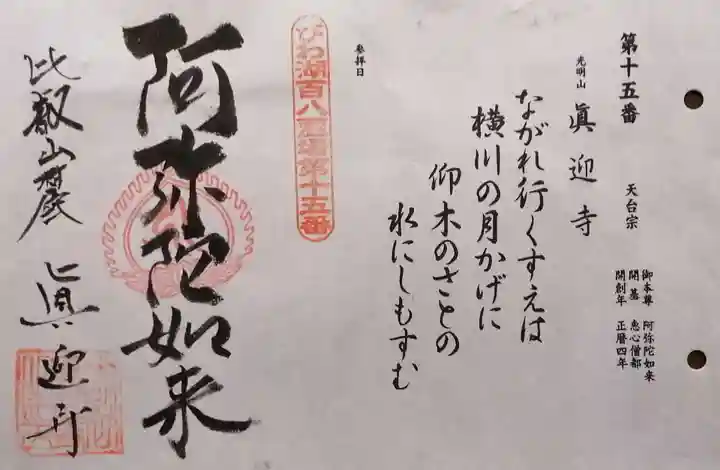 第十五番
天台宗
御本尊 阿弥陀如来
開基 恵心僧都
開創年 正暦四年
光明山
眞迎寺
ながれ行くすえは
横川の月かげに
仰木のさとの
水にしもすむ
参拝日
びわ湖百八霊場第十五番
阿弥陀如来
比叡山麓 眞迎寺